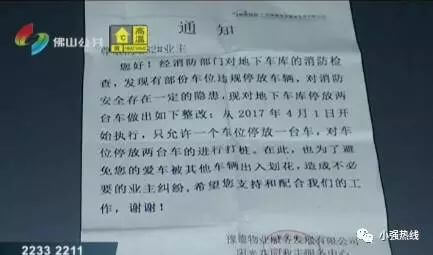 佛山公共
高温
通 知
业主
您好！经消防部门对地下车库的消防检
查，发现有部份车位违规停放车辆，对消防
安全存在一定的隐患，现对地下车库停放两
台车做出如下整改：从2017年4月1日开
始执行，只允许一个车位停放一台车，对车
位停放两台车的进行打桩。在此，也为了避
免您的爱车被其他车辆出入划花，造成不必
要的业主纠纷，希望您支持和配合我们的工
作，谢谢！
物业服务发展有限公司
服务中心
2233 2211
小强热线